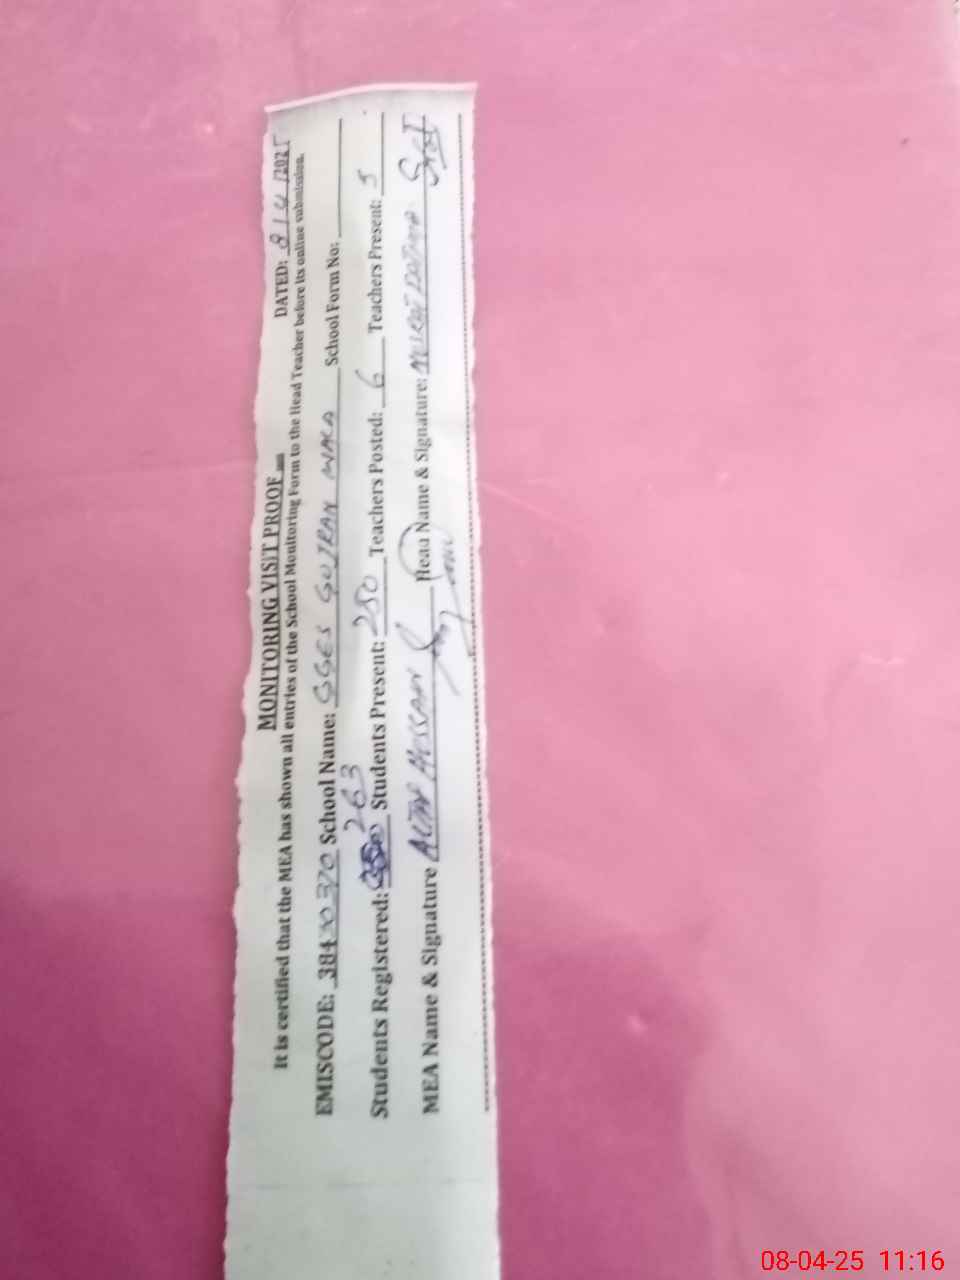 MONITORING VISIT PROOF
DATED: 8/4/2025
It is certified that the MEA has shown all entries of the School Monitoring Form to the Head Teacher before its online submission.
EMISCODE: 38420370 School Name: GGES GUJRAN WALA School Form No:
Students Registered: 263 Students Present: 250 Teachers Posted: 6 Teachers Present: 5
MEA Name & Signature ALTAF HUSSAIN Head Name & Signature:
08-04-25 11:16